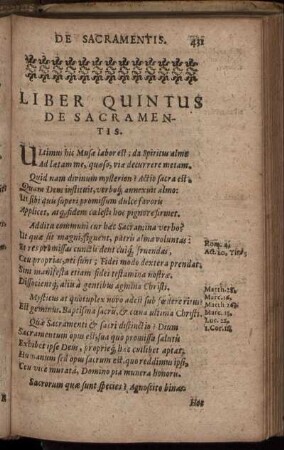 DE SACRAMENTIS. 431
LIBER QUINTUS
DE SACRAMEN-
TIS.
ULtimus hic Musæ labor est; da Spiritus almæ
Ad lætam me, quæso, viæ decurrere metam.
Quid nam divinum mysterion? Actio sacra est,
Quam Deus instituit, verboq́; annexuit almo:
Ut sibi quis superi promissum dulce favoris
Applicet, atq; fidem cælesti hoc pignore firmet.
Addita communi cur hæc Sacramina verbo?
Ut quæ sit magnis figuent, patris alma voluntas:
Et res promissas cunctis det fruendas, Rom. 4.
Ceu proprias, Fidei modo dextera prendat, Act. 20. Tit. 3.
Sint manifesta etiam fidei testamina nostræ,
Dissocientq́; aliis à gentibus agmina Christi.
Mysticus at quotuplex novo adest sub fœdere ritus? Matth. 28.
Est geminus. Baptisma sacrũ, & cœna ultima Christi. Marc. 16.
Matth. 26.
Quæ Sacramenti & sacri distinctio? Dium Marc. 14.
Sacramentum opus est, sua quo promissa salutis Luc. 22.
Exhibet ipse Deus, propriéq́; hæc cuilibet aptat. 1. Cor. 11.
Ho nanum sed opus sacrum est, quo reddimus ipsi,
Ceu vice mutatâ, Domino pia munera honoris.
Sacrorum quæ sunt species? Agnoscito binas.
Hoc